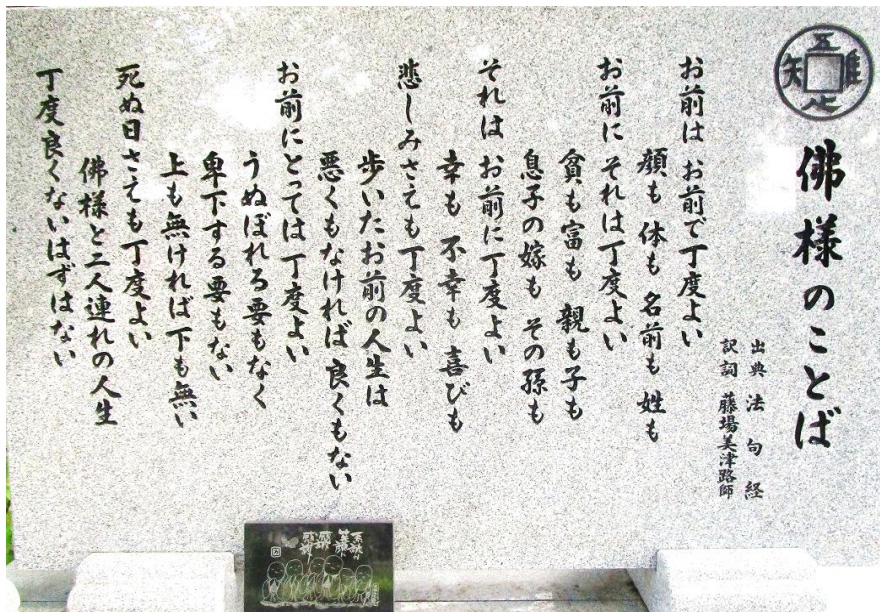 吾唯足知
佛様のことば
出典 法句経
訳詞 藤場美津路師
お前は お前で丁度よい
顔も 体も 名前も 姓も
お前に それは丁度よい
貧も富も 親も子も
息子の嫁も その孫も
それは お前に丁度よい
幸も 不幸も 喜びも
悲しみさえも丁度よい
歩いたお前の人生は
悪くもなければ 良くもない
お前にとっては 丁度よい
うぬぼれる要もなく
卑下する要もない
上も無ければ下も無い
死ぬ日さえも丁度よい
佛様と二人連れの人生
丁度良くないはずはない